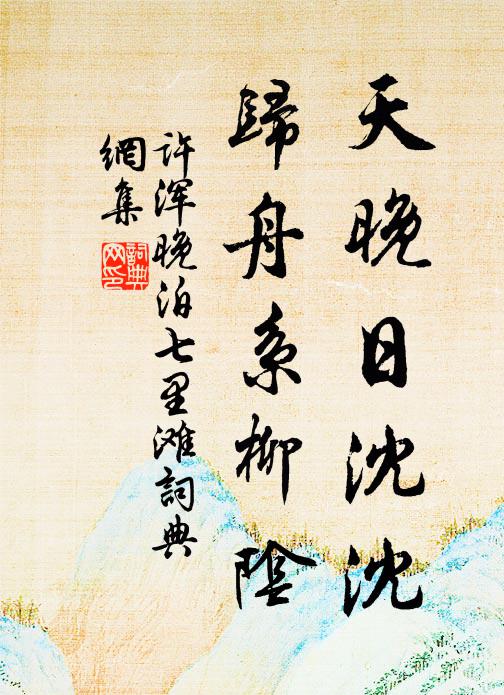 天晚日沈沈
歸舟系柳陰
许浑晚泊七里滩詞典
網集
詞典网印